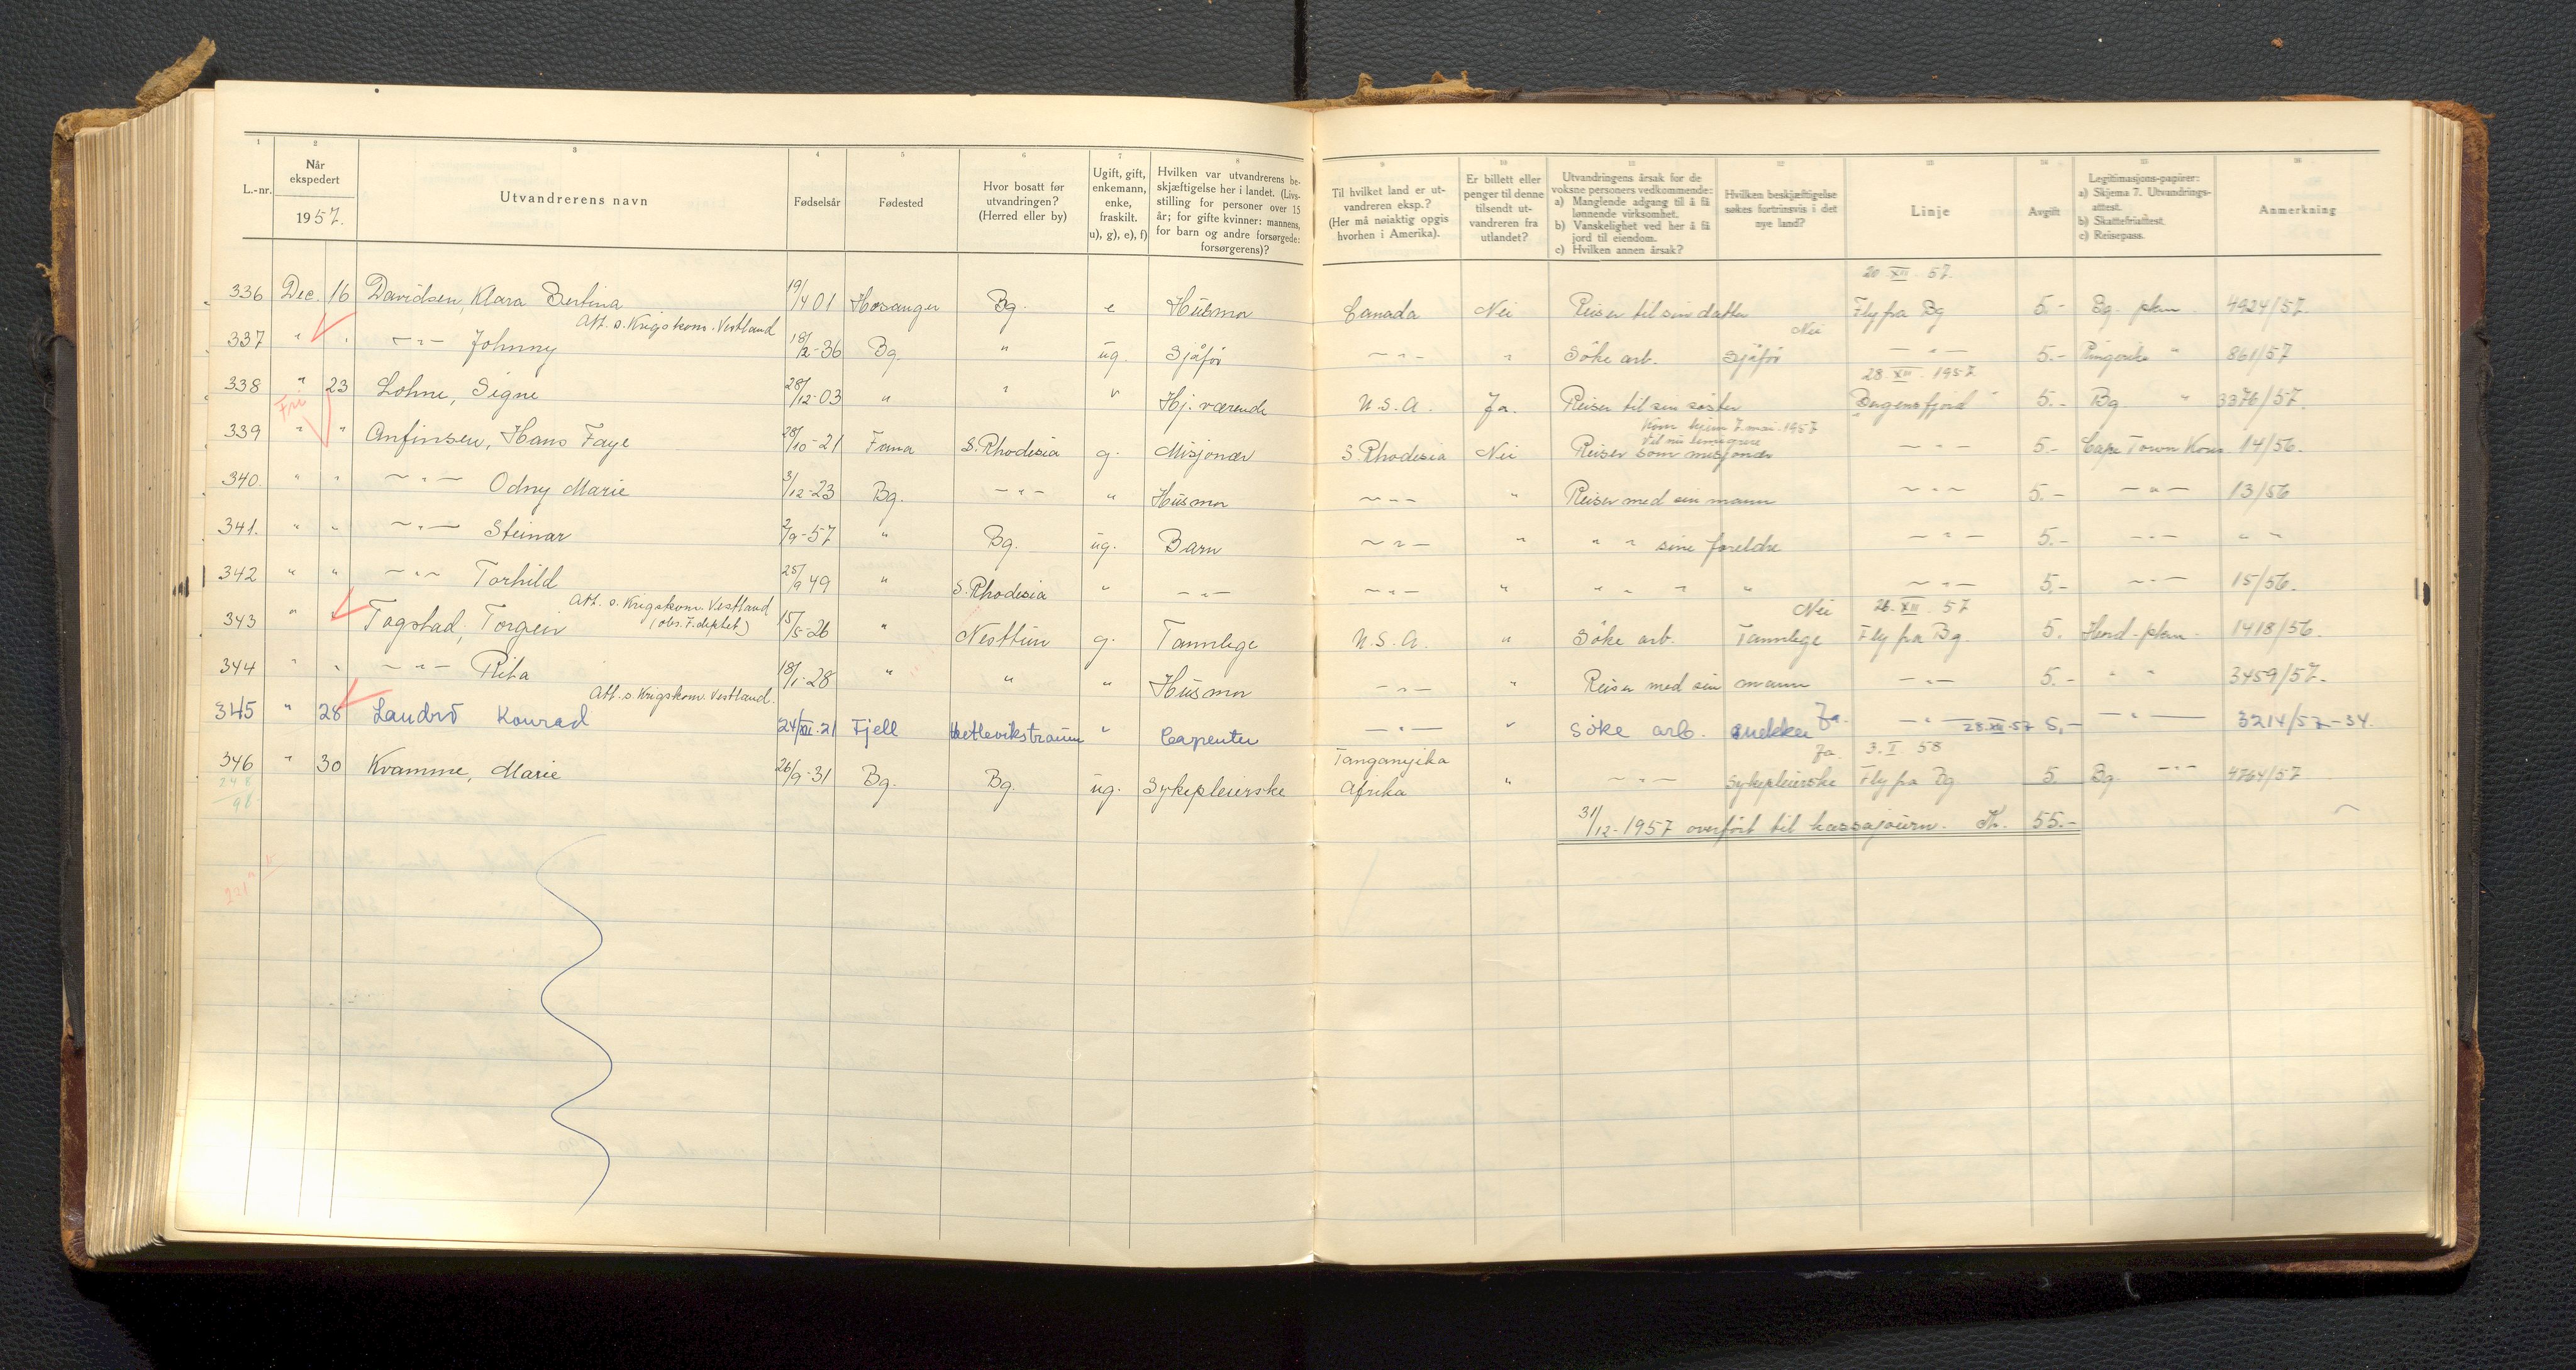 1 2 3 4 5 6 7 8 9 10 11 12 13 14 15 16
L.-nr. Når ekspedert 1957. Utvandrerens navn Fødselsår Fødested Hvor bosatt før utvandringen? (Herred eller by) Ugift, gift, enkemann, enke, fraskilt. u), g), e), f) Hvilken var utvandrerens beskjæftigelse her i landet. (Livsstilling for personer over 15 år; for gifte kvinner: mannens, for barn og andre forsørgede: forsørgerens)? Til hvilket land er utvandreren eksp.? (Her må nøiaktig opgis hvorhen i Amerika). Er billett eller penger til denne tilsendt utvandreren fra utlandet? Utvandringens årsak for de voksne personers vedkommende: a) Manglende adgang til å få lønnende virksomhet. b) Vanskelighet ved her å få jord til eiendom. c) Hvilken annen årsak? Hvilken beskjæftigelse søkes fortrinsvis i det nye land? Linje Avgift Legitimasjons-papirer: a) Skjema 7. Utvandringsattest. b) Skattefriattest. c) Reisepass. Anmerkning
20 XII 57.
336 Dec. 16 Davidsen, Klara Bertina 19/4 01 Hosanger Bg. e Husmor Canada Nei Reiser til sin datter Fly fra Bg 5.- Bg. pkm. 4924/57.
Att. s. Krigskom. Vestland Nei
337 " " -"- Johnny 18/12-36 Bg. " ug. Sjåfør -"- " Søke arb. Sjåfør -"- 5.- Ringerike " 861/57
28. XII. 1957
338 " 23 Lohne, Signe 28/12-03 " " " Hj. værende U.S.A. Ja. Reiser til sin søster "Bergensfjord" 5.- Bg " 3376/57.
Fri Kom hjem 7. mai. 1957
Vil nu emigrere
339 " " Anfinsen, Hans Faye 28/10-21 Fana S. Rhodesia g. Misjonær S. Rhodesia Nei Reiser som misjonær -"- 5.- Cape Town Kons. 14/56.
340. " " -"- Odny Marie 3/12-23 Bg. -"- " Husmor -"- " Reiser med sin mann -"- 5.- -"- 13/56
341. " " -"- Steinar 2/9-57 " Bg. ug. Barn -"- " " " sine foreldre -"- 5.- -"- " "
342 " " -"- Torhild 25/9 49 " S. Rhodesia " -"- -"- " " " " " -"- 5.- -"- 15/56.
Att. s. Krigskom. Vestland Nei 26. XII 57
343 " " Fagstad, Torgeir (obs. 7. dept.) 15/5-26 " Nesttun g. Tannlege U.S.A. " Søke arb. Tannlege Fly fra Bg. 5. Hord-pkm. 1418/56.
344 " " -"- Rita 18/1-28 " " " Husmor -"- " Reiser med sin mann -"- 5.- " " 3459/57.
Att. s. Krigskom. Vestland.
345 " 28 Landrö Konrad 24/XII-21 Fjell Hetlevikstraum " Carpenter -"- " Söke arb. snekker Ja. -"- 28.XII-57 5,- -"- 3214/57-34.
Tanganyika Ja. 3. I 58
346 " 30 Kvamme, Marie 26/9-31 Bg. Bg. ug. Sykepleierske Afrika " -"- Sykepleierske Fly fra Bg 5. Bg. -"- 4764/57
248
98
31/12-1957 overført til kassajourn. Kr. 55.-